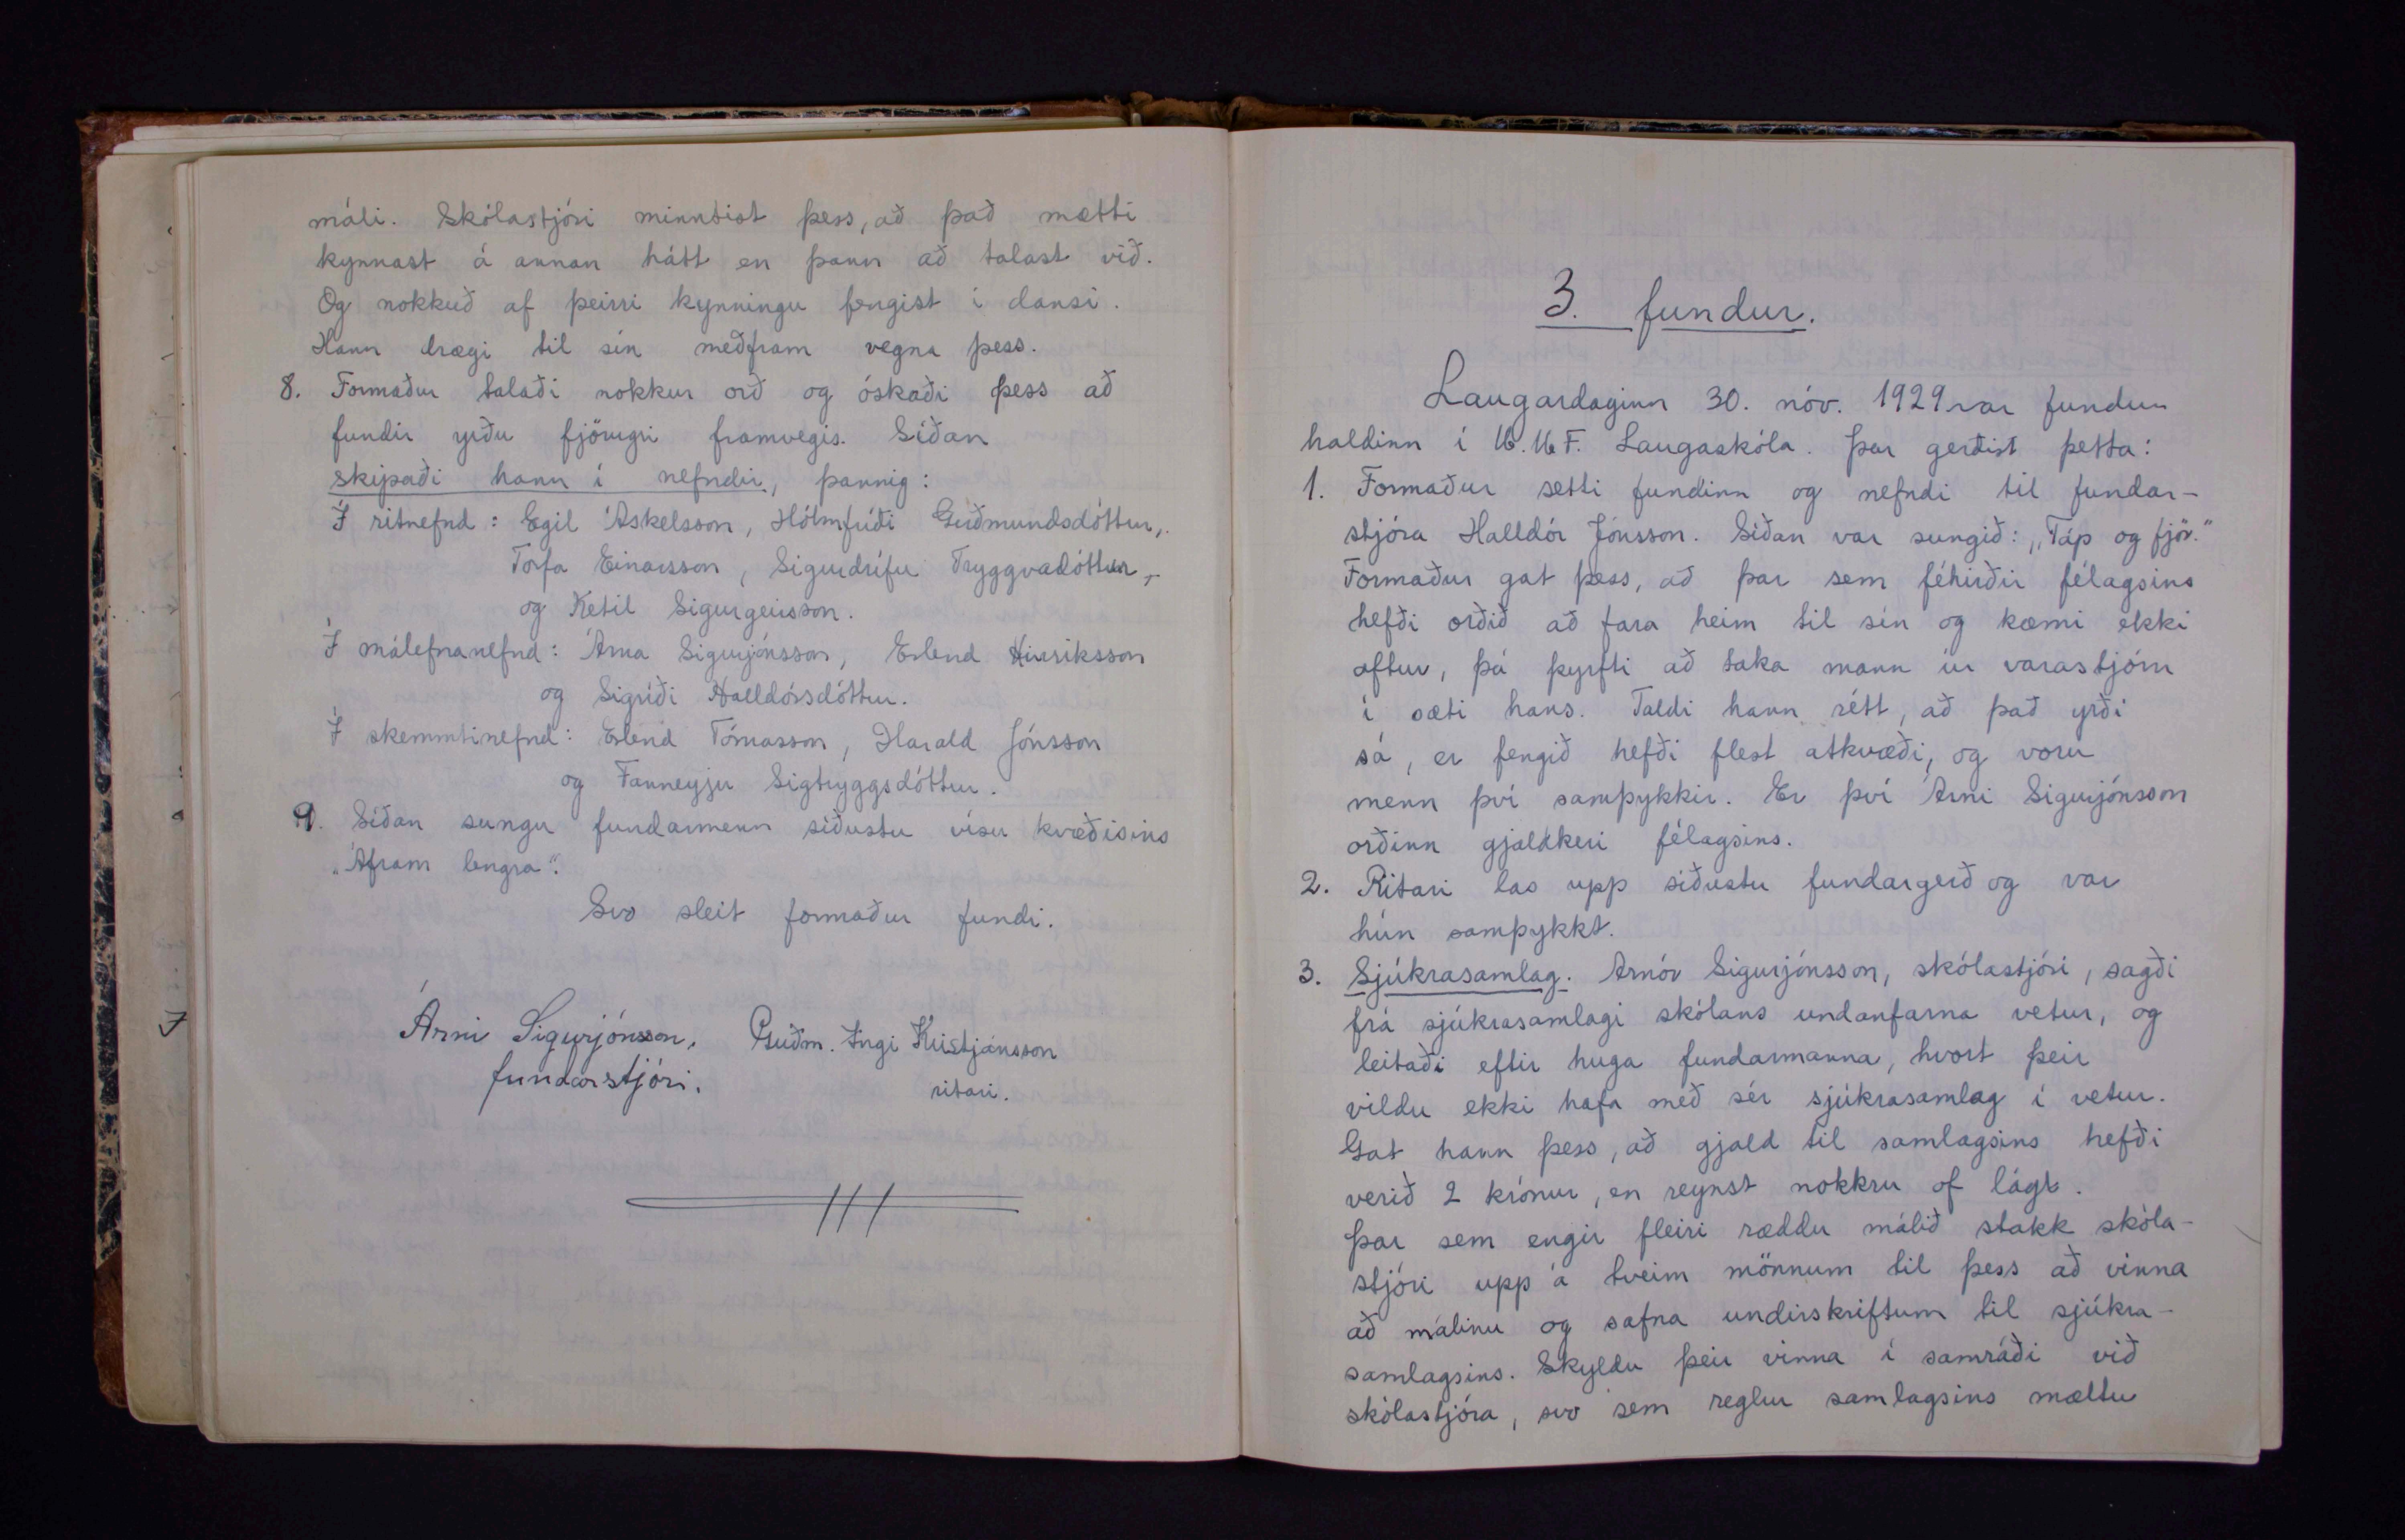 máli. Skólastjóri minntist þess, að það mætti
kynnast á annan hátt en þann að talast við.
Og nokkuð af þeirri kynningu fengist í dansi.
Hann drægi til sín meðfram vegna þess.
8. Formaður talaði nokkur orð og óskaði þess að
fundir yrðu fjörugri framvegis. Síðan
skipaði hann í nefndir, þannig:
Í ritnefnd: Egil Áskelsson, Hólmfríði Guðmundsdóttur,
Torfa Einarsson, Sigurdrífu Tryggvadóttur,
og Ketil Sigurgeirsson.
Í málefnanefnd: Árna Sigurjónsson, Erlend Hinriksson
og Sigríði Halldórsdóttur.
Í skemmtinefnd: Erlend Tómasson, Harald Jónsson
og Fanneyju Sigtryggsdóttur.
9. Síðan sungu fundarmenn síðustu vísu kvæðisins
„Áfram lengra".
Svo sleit formaður fundi.
Árni Sigurjónsson, Guðm. Ingi Kristjánsson
fundarstjóri. ritari.
3. fundur.
Laugardaginn 30. nóv. 1929 var fundur
haldinn í U.M.F. Laugaskóla. Þar gerðist þetta:
1. Formaður setti fundinn og nefndi til fundar-
stjóra Halldór Jónsson. Síðan var sungið: „Táp og fjör."
Formaður gat þess, að þar sem féhirðir félagsins
hefði orðið að fara heim til sín og kæmi ekki
aftur, þá þyrfti að taka mann úr varastjórn
í sæti hans. Taldi hann rétt, að það yrði
sá, er fengið hefði flest atkvæði, og voru
menn því samþykkir. Er því Árni Sigurjónsson
orðinn gjaldkeri félagsins.
2. Ritari las upp síðustu fundargerð og var
hún samþykkt.
3. Sjúkrasamlag. Arnór Sigurjónsson, skólastjóri, sagði
frá sjúkrasamlagi skólans undanfarna vetur, og
leitaði eftir huga fundarmanna, hvort þeir
vildu ekki hafa með sér sjúkrasamlag í vetur.
Gat hann þess, að gjald til samlagsins hefði
verið 2 krónur, en reynst nokkru of lágt.
Þar sem engir fleiri ræddu málið stakk skóla-
stjóri upp á tveim mönnum til þess að vinna
að málinu og safna undirskriftum til sjúkra-
samlagsins. Skyldu þeir vinna í samráði við
skólastjóra, svo sem reglur samlagsins mæltu